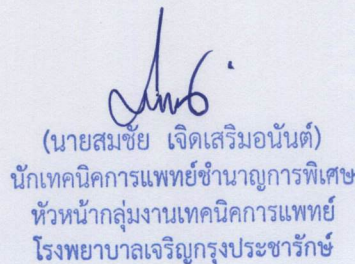 (นายสมชัย เจิดเสริมอนันต์)
นักเทคนิคการแพทย์ชำนาญการพิเศษ
หัวหน้ากลุ่มงานเทคนิคการแพทย์
โรงพยาบาลเจริญกรุงประชารักษ์